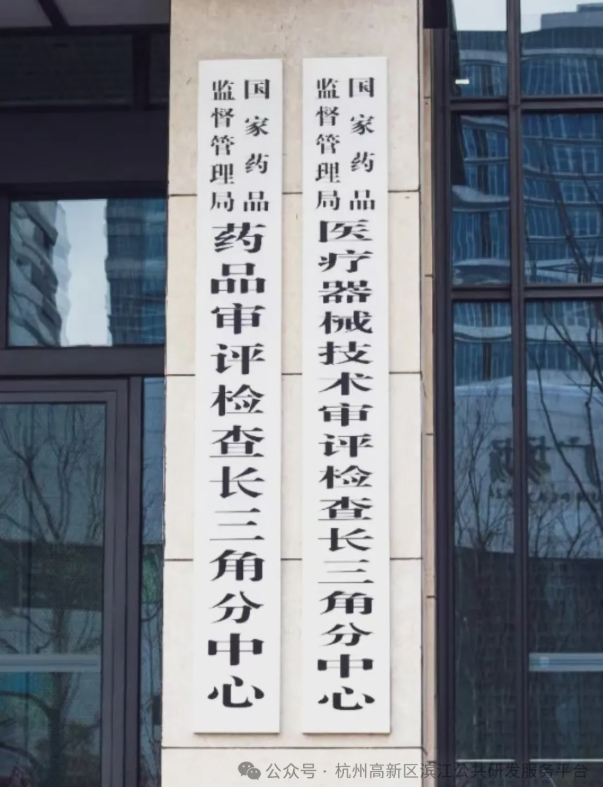 国家药品
监督管理局
医疗器械技术审评检查长三角分中心
国家药品
监督管理局
药品审评检查长三角分中心
公众号 · 杭州高新区滨江公共研发服务平台